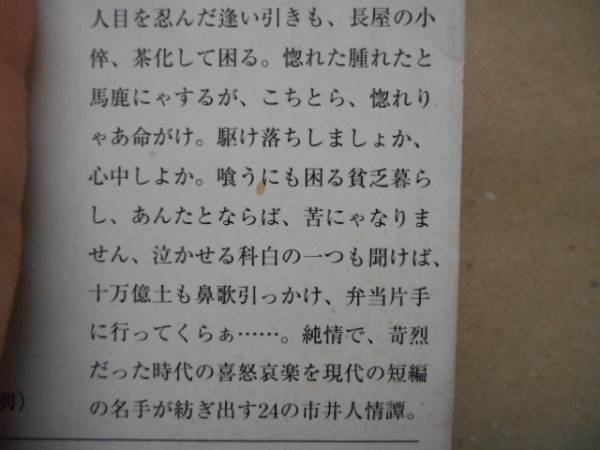 人目を忍んだ逢い引きも、長屋の小
倅、茶化して困る。惚れた腫れたと
馬鹿にゃするが、こちとら、惚れり
ゃあ命がけ。駆け落ちしましょか、
心中しよか。喰うにも困る貧乏暮ら
し、あんたとならば、苦にゃなりま
せん、泣かせる科白の一つも聞けば、
十万億土も鼻歌引っかけ、弁当片手
に行ってくらぁ……。純情で、苛烈
だった時代の喜怒哀楽を現代の短編
の名手が紡ぎ出す24の市井人情譚。
別）